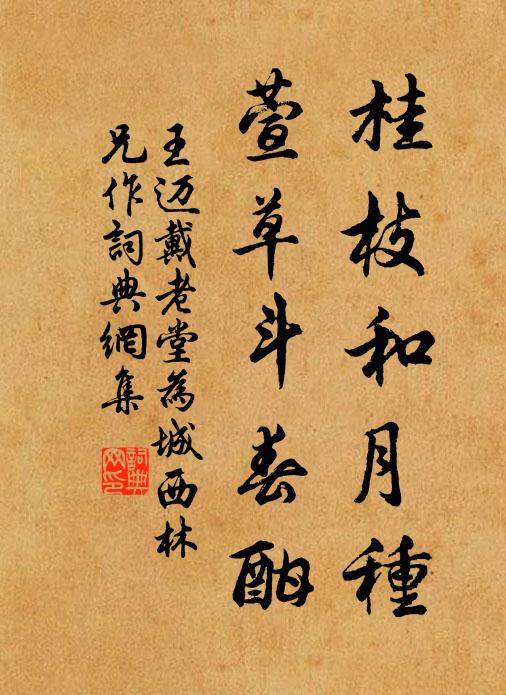 桂枝和月種
萱草斗春酣
王迈戴老堂為城西林
兄作詞典網集
詞典網印